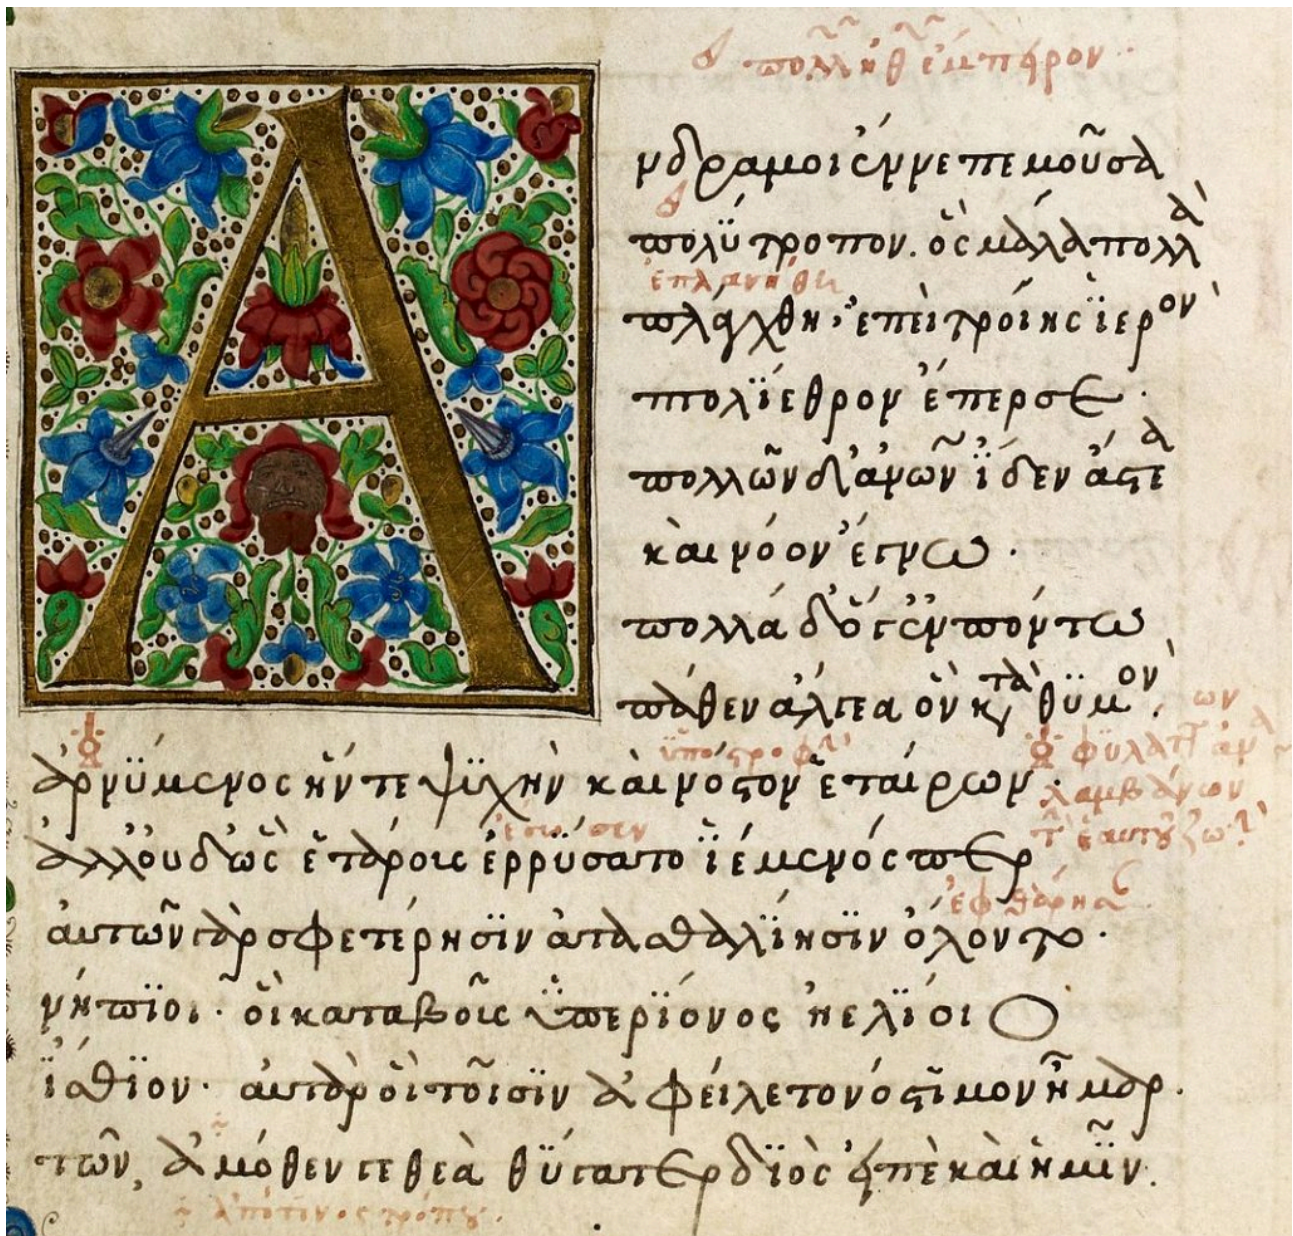 πολλῆς ἔμπειρον
Α
νδρα μοι ἔννεπε μοῦσα
πολύτροπον. ὃς μάλα πολλὰ
ἐπλανήθη
πλάγχθη, ἐπεὶ τροίης ἱερὸν
πτολίεθρον ἔπερσε·
πολλῶν δ' ἀνθρώπων ἴδεν ἄστεα
καὶ νόον ἔγνω·
πολλὰ δ' ὅγ' ἐν πόντω
πάθεν ἄλγεα ὃν κατὰ θυμόν.
ὑποστροφὴν
ἀρνύμενος ἥν τε ψυχὴν καὶ νόστον ἑταίρων.
ἔσωσεν
ἀλλ' οὐδ' ὣς ἑτάροις ἐρρύσατο ἱέμενός περ
ἐφθάρησαν
αὐτῶν γὰρ σφετέρησιν ἀτασθαλίησιν ὄλοντο·
νήπιοι· οἳ κατὰ βοῦς ὑπερίονος ἠελίοιο
ἤσθιον· αὐτὰρ ὃ τοῖσιν ἀφείλετο νόστιμον ἦμαρ.
τῶν, ἀμόθεν γε θεὰ θύγατερ διὸς εἰπὲ καὶ ἡμῖν.
ἀπό τινος τρόπου.